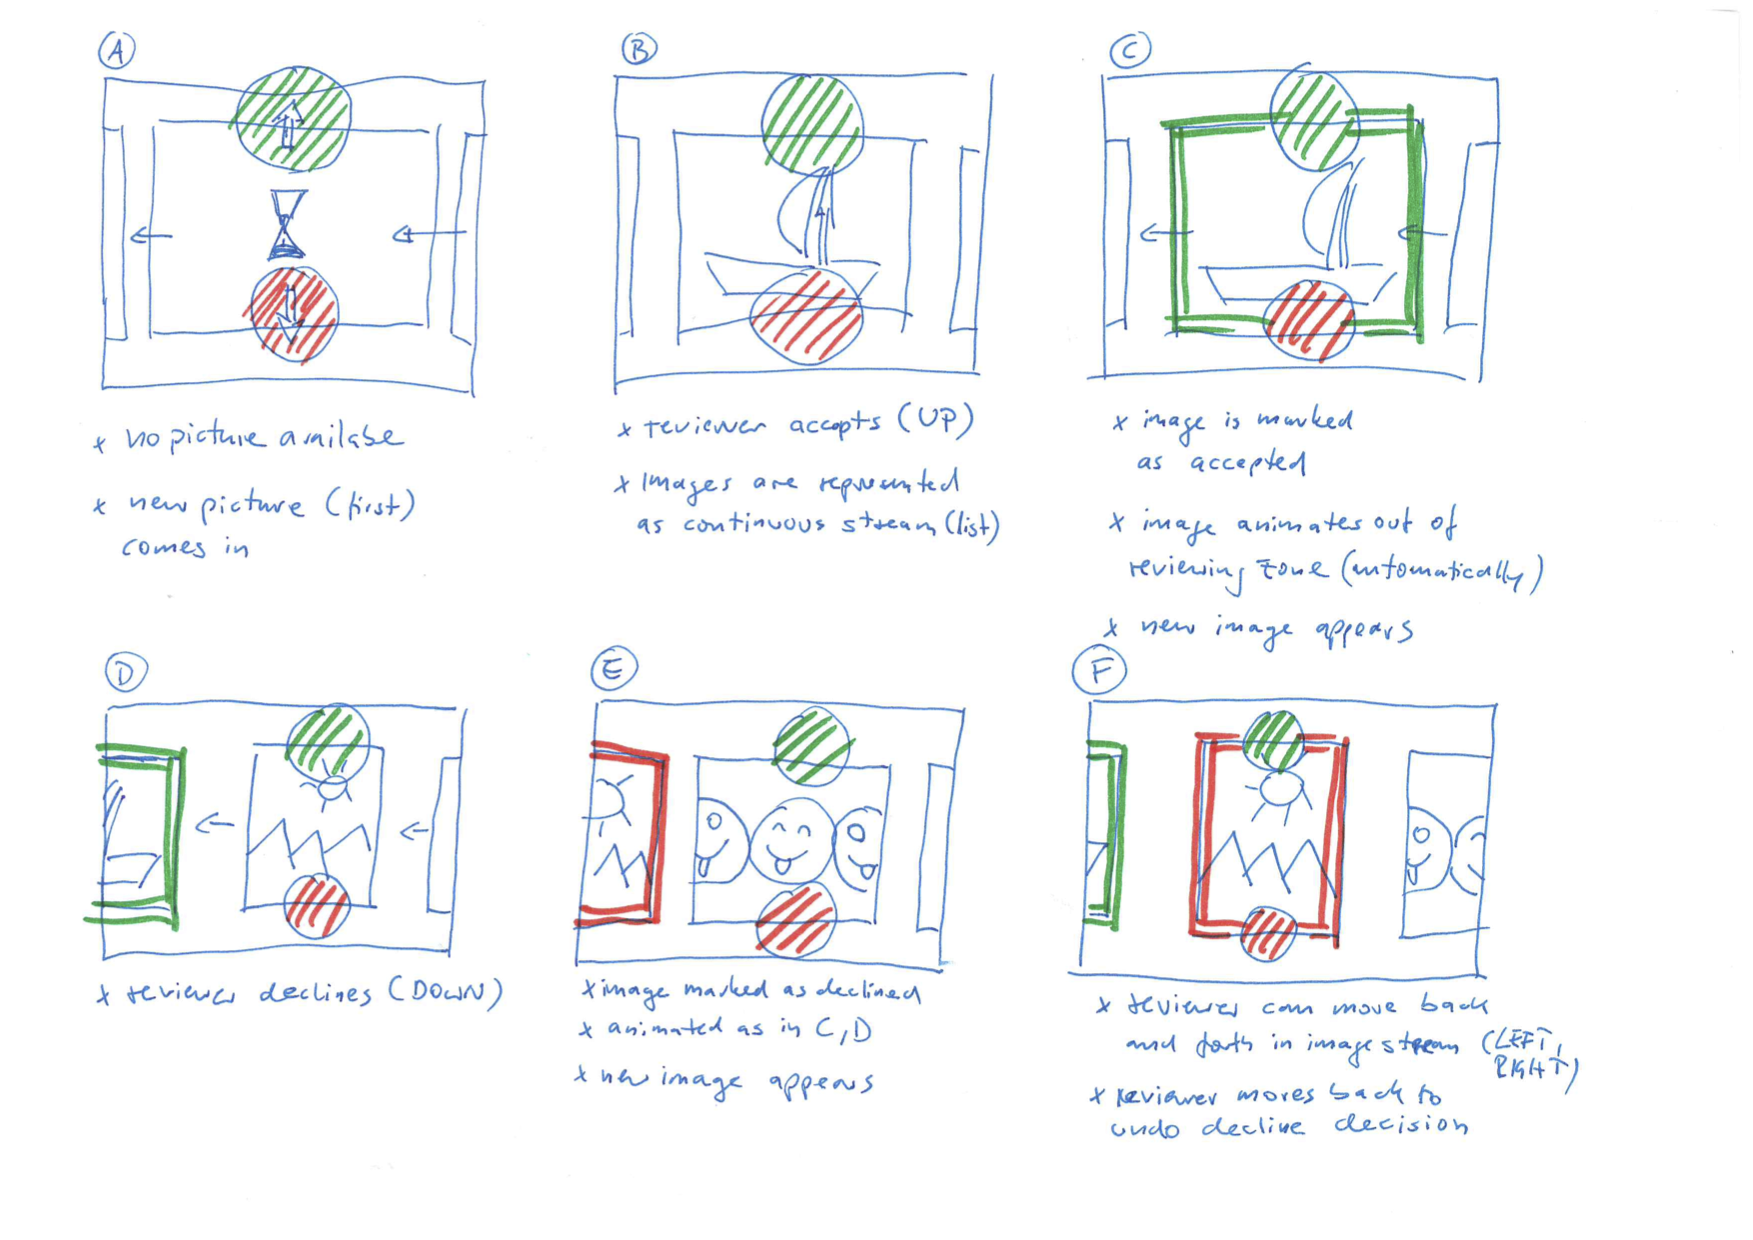 A
× no picture availabe
× new picture (first)
comes in
B
× reviewer accepts (UP)
× Images are represented
as continuous stream (list)
C
× image is marked
as accepted
× image animates out of
reviewing zone (automatically)
× new image appears
D
× reviewer declines (DOWN)
E
× image marked as declined
× animated as in C, D
× new image appears
F
× reviewer can move back
and forth in image stream (LEFT,
RIGHT)
× reviewer moves back to
undo decline decision